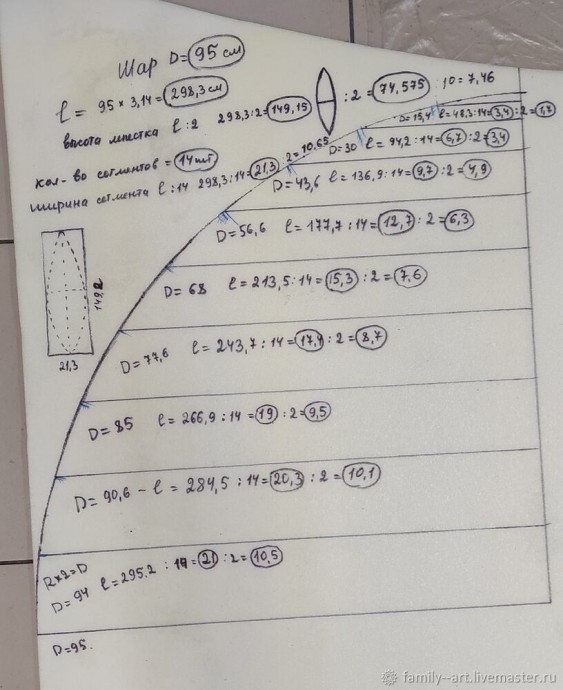 Шар D= 95 см
l = 95 × 3,14 = 298,3 см
высота лепестка l : 2 298,3 : 2 = 149,15 : 2 = 74,575 : 10 = 7,46
кол-во сегментов = 14 шт
ширина сегмента l : 14 298,3 : 14 = 21,3 : 2 = 10.65
D= 15,4 l= 48,3 : 14 = 3,4 : 2 = 1,7
D= 30 l= 94,2 : 14 = 6,7 : 2 = 3,4
D= 43,6 l= 136,9 : 14 = 9,7 : 2 = 4,9
D= 56,6 l= 177,7 : 14 = 12,7 : 2 = 6,3
D= 68 l= 213,5 : 14 = 15,3 : 2 = 7,6
D= 77,6 l= 243,7 : 14 = 17,4 : 2 = 8,7
D= 85 l= 266,9 : 14 = 19 : 2 = 9,5
D= 90,6 – l = 284,5 : 14 = 20,3 : 2 = 10,1
R×2=D
D= 94 l= 295.2 : 14 = 21 : 2 = 10,5
D= 95.
149,2
21,3
family--art.livemaster.ru